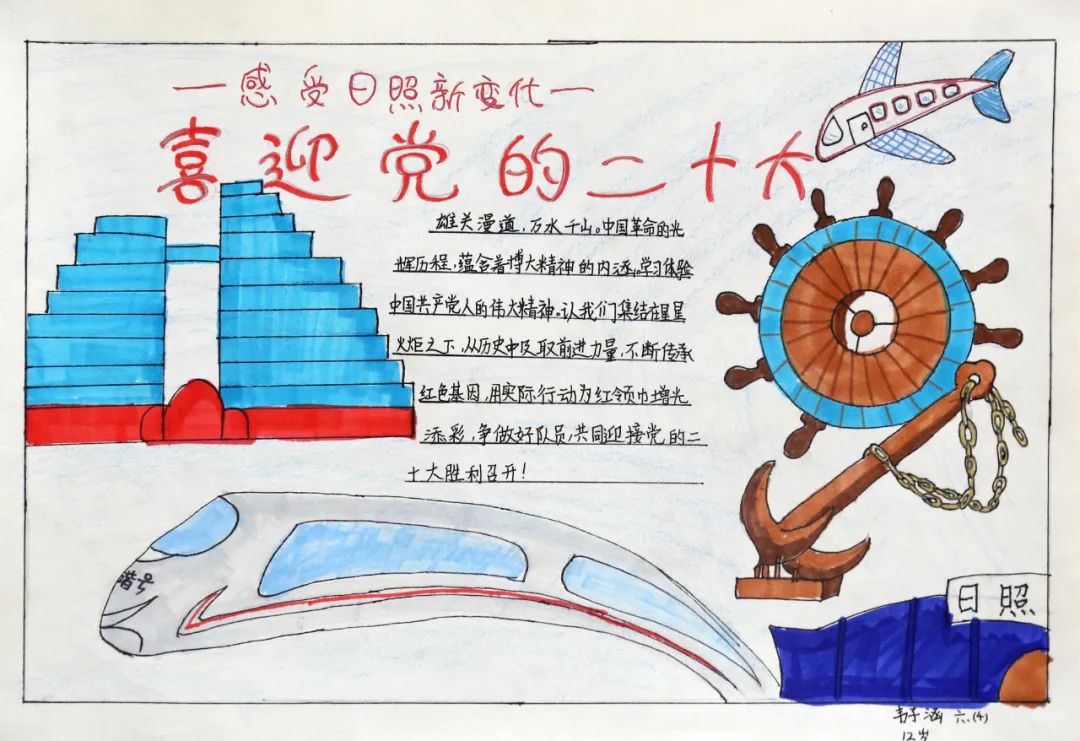 一感受日照新变化一
喜迎党的二十大
雄关漫道,万水千山。中国革命的光
辉历程,蕴含着博大精神的内涵。学习体验
中国共产党人的伟大精神。认我们集结在星星
火炬之下,从历史中及取前进力量,不断传承
红色基因,用实际行动为红领巾增光
添彩,争做好队员,共同迎接党的二
十大胜利召开!
谐号
日照
韦子涵 六.(4)
12岁